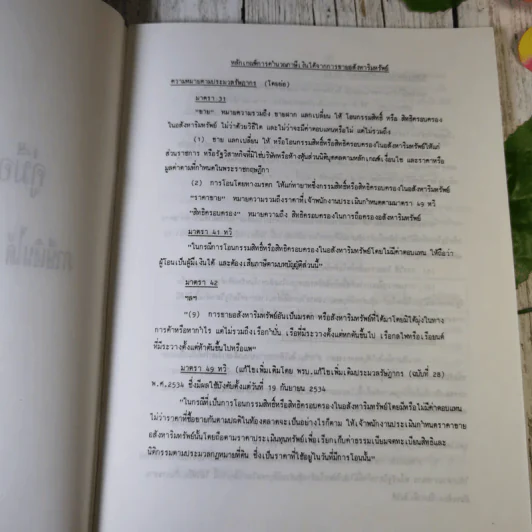 หลักเกณฑ์การคำนวณภาษีเงินได้จากการขายอสังหาริมทรัพย์
ความหมายตามประมวลรัษฎากร (โดยย่อ)
มาตรา 31
"ขาย" หมายความรวมถึง ขายฝาก แลกเปลี่ยน ให้ โอนกรรมสิทธิ์ หรือ สิทธิครอบครอง
ในอสังหาริมทรัพย์ ไม่ว่าด้วยวิธีใด และไม่ว่าจะมีค่าตอบแทนหรือไม่ แต่ไม่รวมถึง
(1) ขาย แลกเปลี่ยน ให้ หรือโอนกรรมสิทธิ์หรือสิทธิครอบครองในอสังหาริมทรัพย์ให้แก่
ส่วนราชการ หรือรัฐวิสาหกิจที่มิใช่บริษัทหรือห้างหุ้นส่วนนิติบุคคลตามหลักเกณฑ์เงื่อนไข และราคาหรือ
มูลค่าตามที่กำหนดในพระราชกฤษฎีกา
(2) การโอนโดยทางมรดก ให้แก่ทายาทซึ่งกรรมสิทธิ์หรือสิทธิครอบครองในอสังหาริมทรัพย์
"ราคาขาย" หมายความรวมถึงราคาที่เจ้าพนักงานประเมินกำหนดตามมาตรา 49 ทวิ
"สิทธิครอบครอง" หมายความถึง สิทธิครอบครองในการถือครองอสังหาริมทรัพย์
มาตรา 41 ทวิ
"ในกรณีการโอนกรรมสิทธิ์หรือสิทธิครอบครองในอสังหาริมทรัพย์โดยไม่มีค่าตอบแทน ให้ถือว่า
ผู้โอนเป็นผู้มีเงินได้ และต้องเสียภาษีตามบทบัญญัติส่วนนี้"
มาตรา 42
ฯลฯ
"(9) การขายอสังหาริมทรัพย์อันเป็นมรดก หรืออสังหาริมทรัพย์ที่ได้มาโดยมิได้มุ่งในทาง
การค้าหรือหากำไร แต่ไม่รวมถึงเรือกำปั่น เรือที่มีระวางตั้งแต่หกตันขึ้นไป เรือกลไฟหรือเรือยนต์
ที่มีระวางตั้งแต่ห้าตันขึ้นไปหรือแพ"
มาตรา 49 ทวิ (แก้ไขเพิ่มเติมโดย พรบ.แก้ไขเพิ่มเติมประมวลรัษฎากร (ฉบับที่ 28)
พ.ศ.2534 ซึ่งมีผลใช้บังคับตั้งแต่วันที่ 19 กันยายน 2534
"ในกรณีที่เป็นการโอนกรรมสิทธิ์หรือสิทธิครอบครองในอสังหาริมทรัพย์โดยมีหรือไม่มีค่าตอบแทน
ไม่ว่าราคาที่ซื้อขายกันตามปกติในท้องตลาดจะเป็นอย่างไรก็ตาม ให้เจ้าพนักงานประเมินกำหนดราคาขาย
อสังหาริมทรัพย์นั้นโดยถือตามราคาประเมินทุนทรัพย์เพื่อเรียกเก็บค่าธรรมเนียมจดทะเบียนสิทธิและ
นิติกรรมตามประมวลกฎหมายที่ดิน ซึ่งเป็นราคาที่ใช้อยู่ในวันที่มีการโอนนั้น"